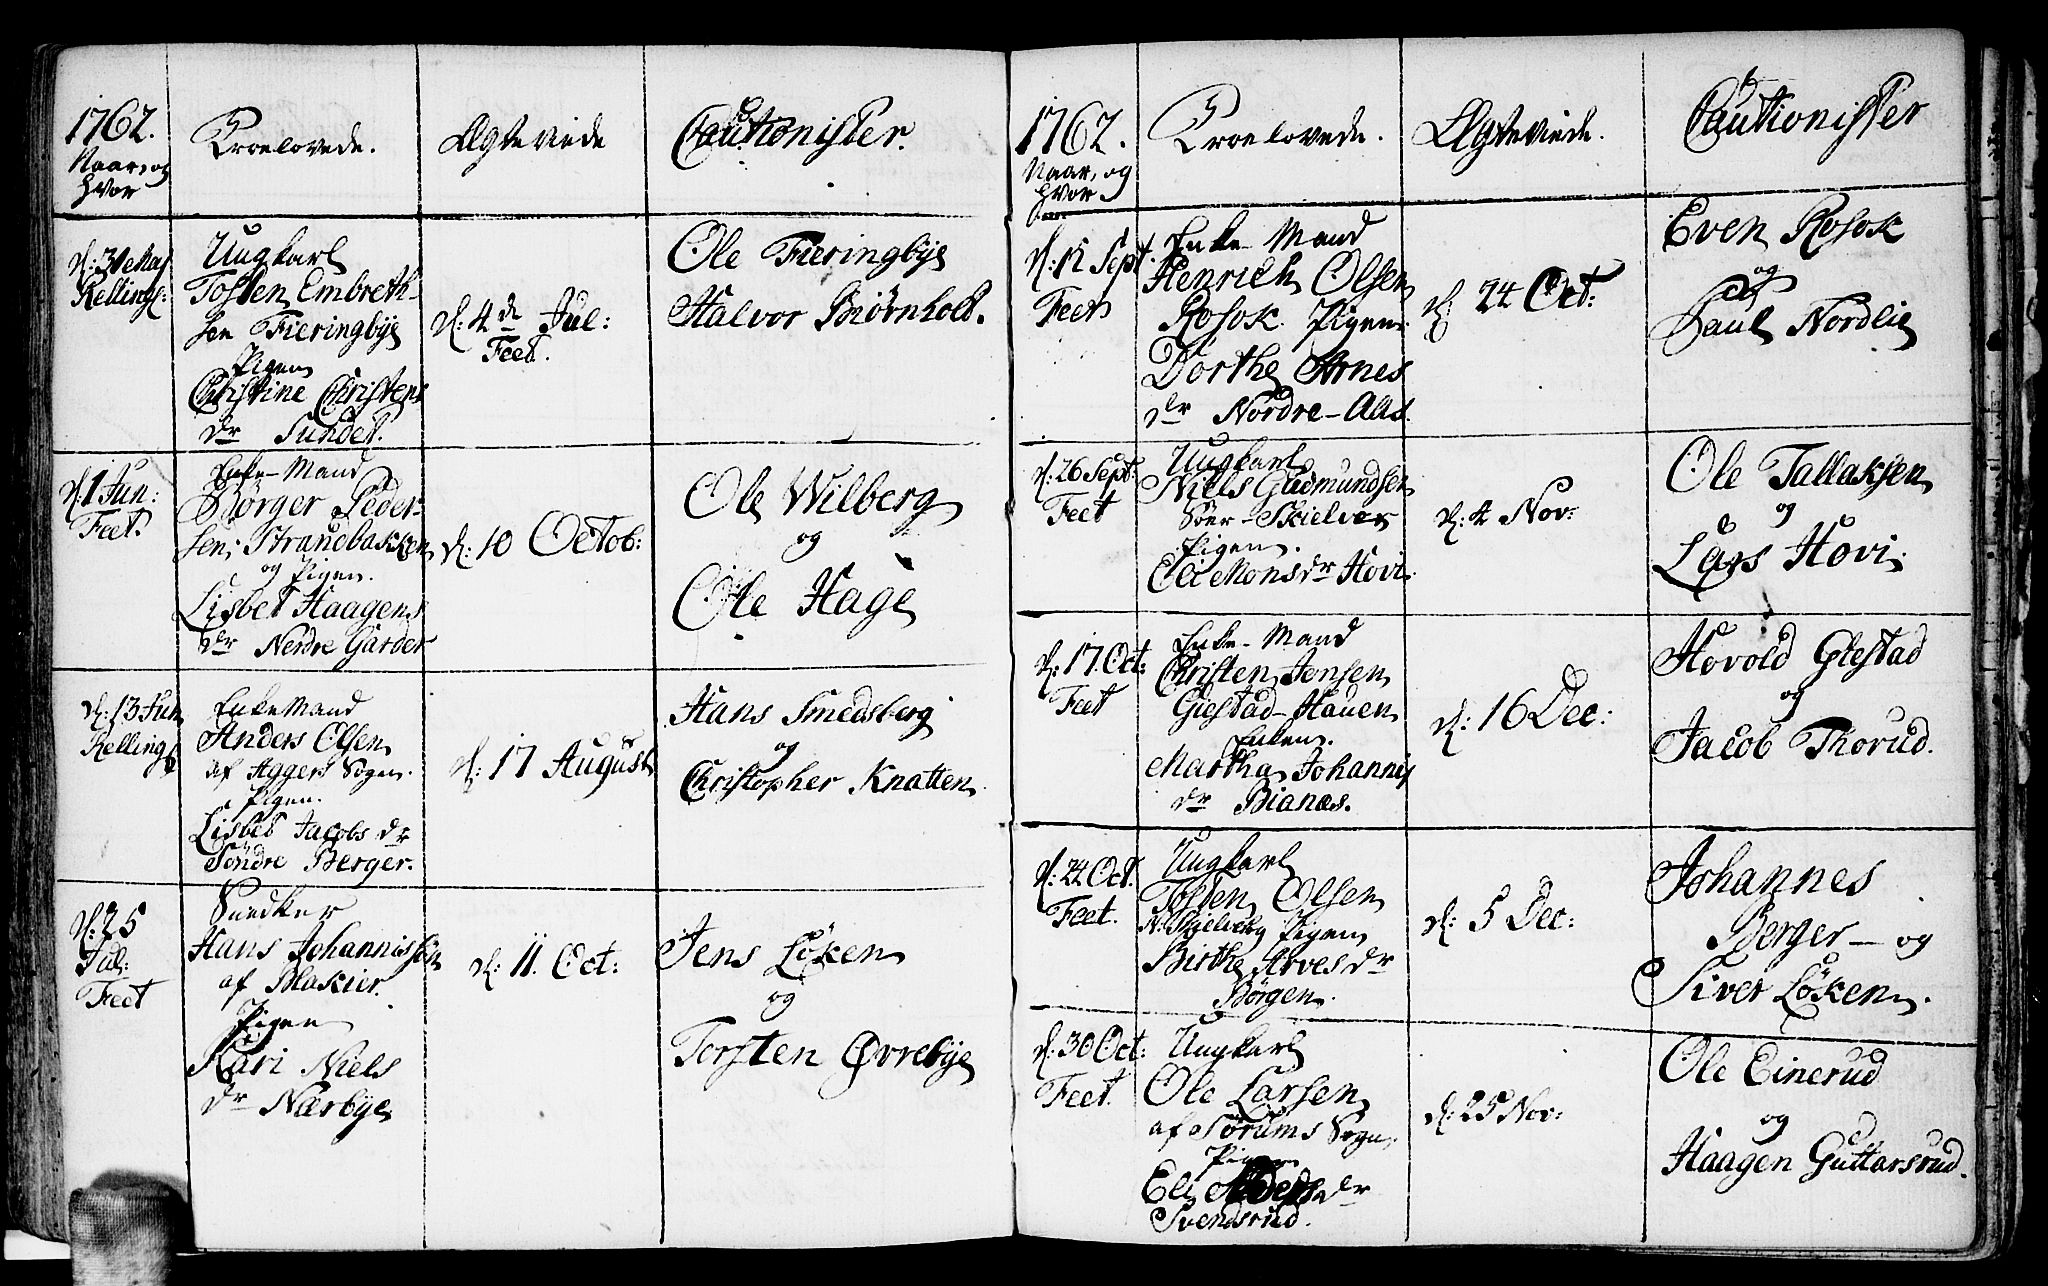 1762.
Naar, og
hvor
Troelovede.
Ægteviede
Cautionister.
d: 31 Maj
Relling:
Ungkarl
Tosten Embreth-
sen Fieringbye
Pigen
Christine Christens
dr Sundet.
d: 4de Jul:
Feet.
Ole Fieringbye
Halvor Biørnholt.
d: 1 Jun:
Feet.
Enke-Mand
Børger Peder-
sen, Strandbakken
og Pigen.
Lisbet Haagens
dr Nerdre Garder
d: 10 Octob:
Ole Wilberg
og
Ole Hage
d: 13 Jun
Relling
Enke Mand
Anders Olsen
af Aggers Sogn.
Pigen.
Lisbet Jacobs dr
Søndre Berger.
d: 17 August
Hans Smedsberg
og
Christopher Knatten
d: 25
Jul:
Feet
Snedker
Hans Johannissøn
af Blakier.
Pigen
Kari Niels
dr Nærbye
d: 11. Oct:
Jens Løken
og
Torsten Øvrebye
1762.
Naar, og
hvor
Troelovede.
Ægteviede.
Cautionister
d: 12 Sept.
Feet
Enke-Mand
Henrich Olsen
Rosok. Pigen
Dorthe Arnes
dr Nordre-Aas.
d: 24 Oct:
Even Rosok
og
Paul Nordlie
d: 26 Sept:
Feet
Ungkarl
Niels Gudmundsen
Søer-Skielver
Pigen.
Eli Mons dr Hovi.
d: 4 Nov:
Ole Tallaksen
og
Lars Hovi.
d: 17. Oct:
Feet
Enke-Mand
Christen Jensen
Giestad-Hauen
Enken.
Martha Johannis
dr Bianæs.
d: 16 Dec:
Hovold Giestad
og
Jacob Thorud.
d: 24 Oct.
Feet.
Ungkarl
Tosten Olsen
N: Skjelver Pigen
Birthe Arves dr
Børgen.
d: 5 Dec:
Johannes
Berger - og
Siver Løken.
d: 30 Oct:
Feet.
Ungkarl
Ole Larsen
af Sørums Sogn.
Pigen
Eli dr
Svendsrud.
d: 25 Nov:
Ole Einerud
og
Haagen Guttarsrud.